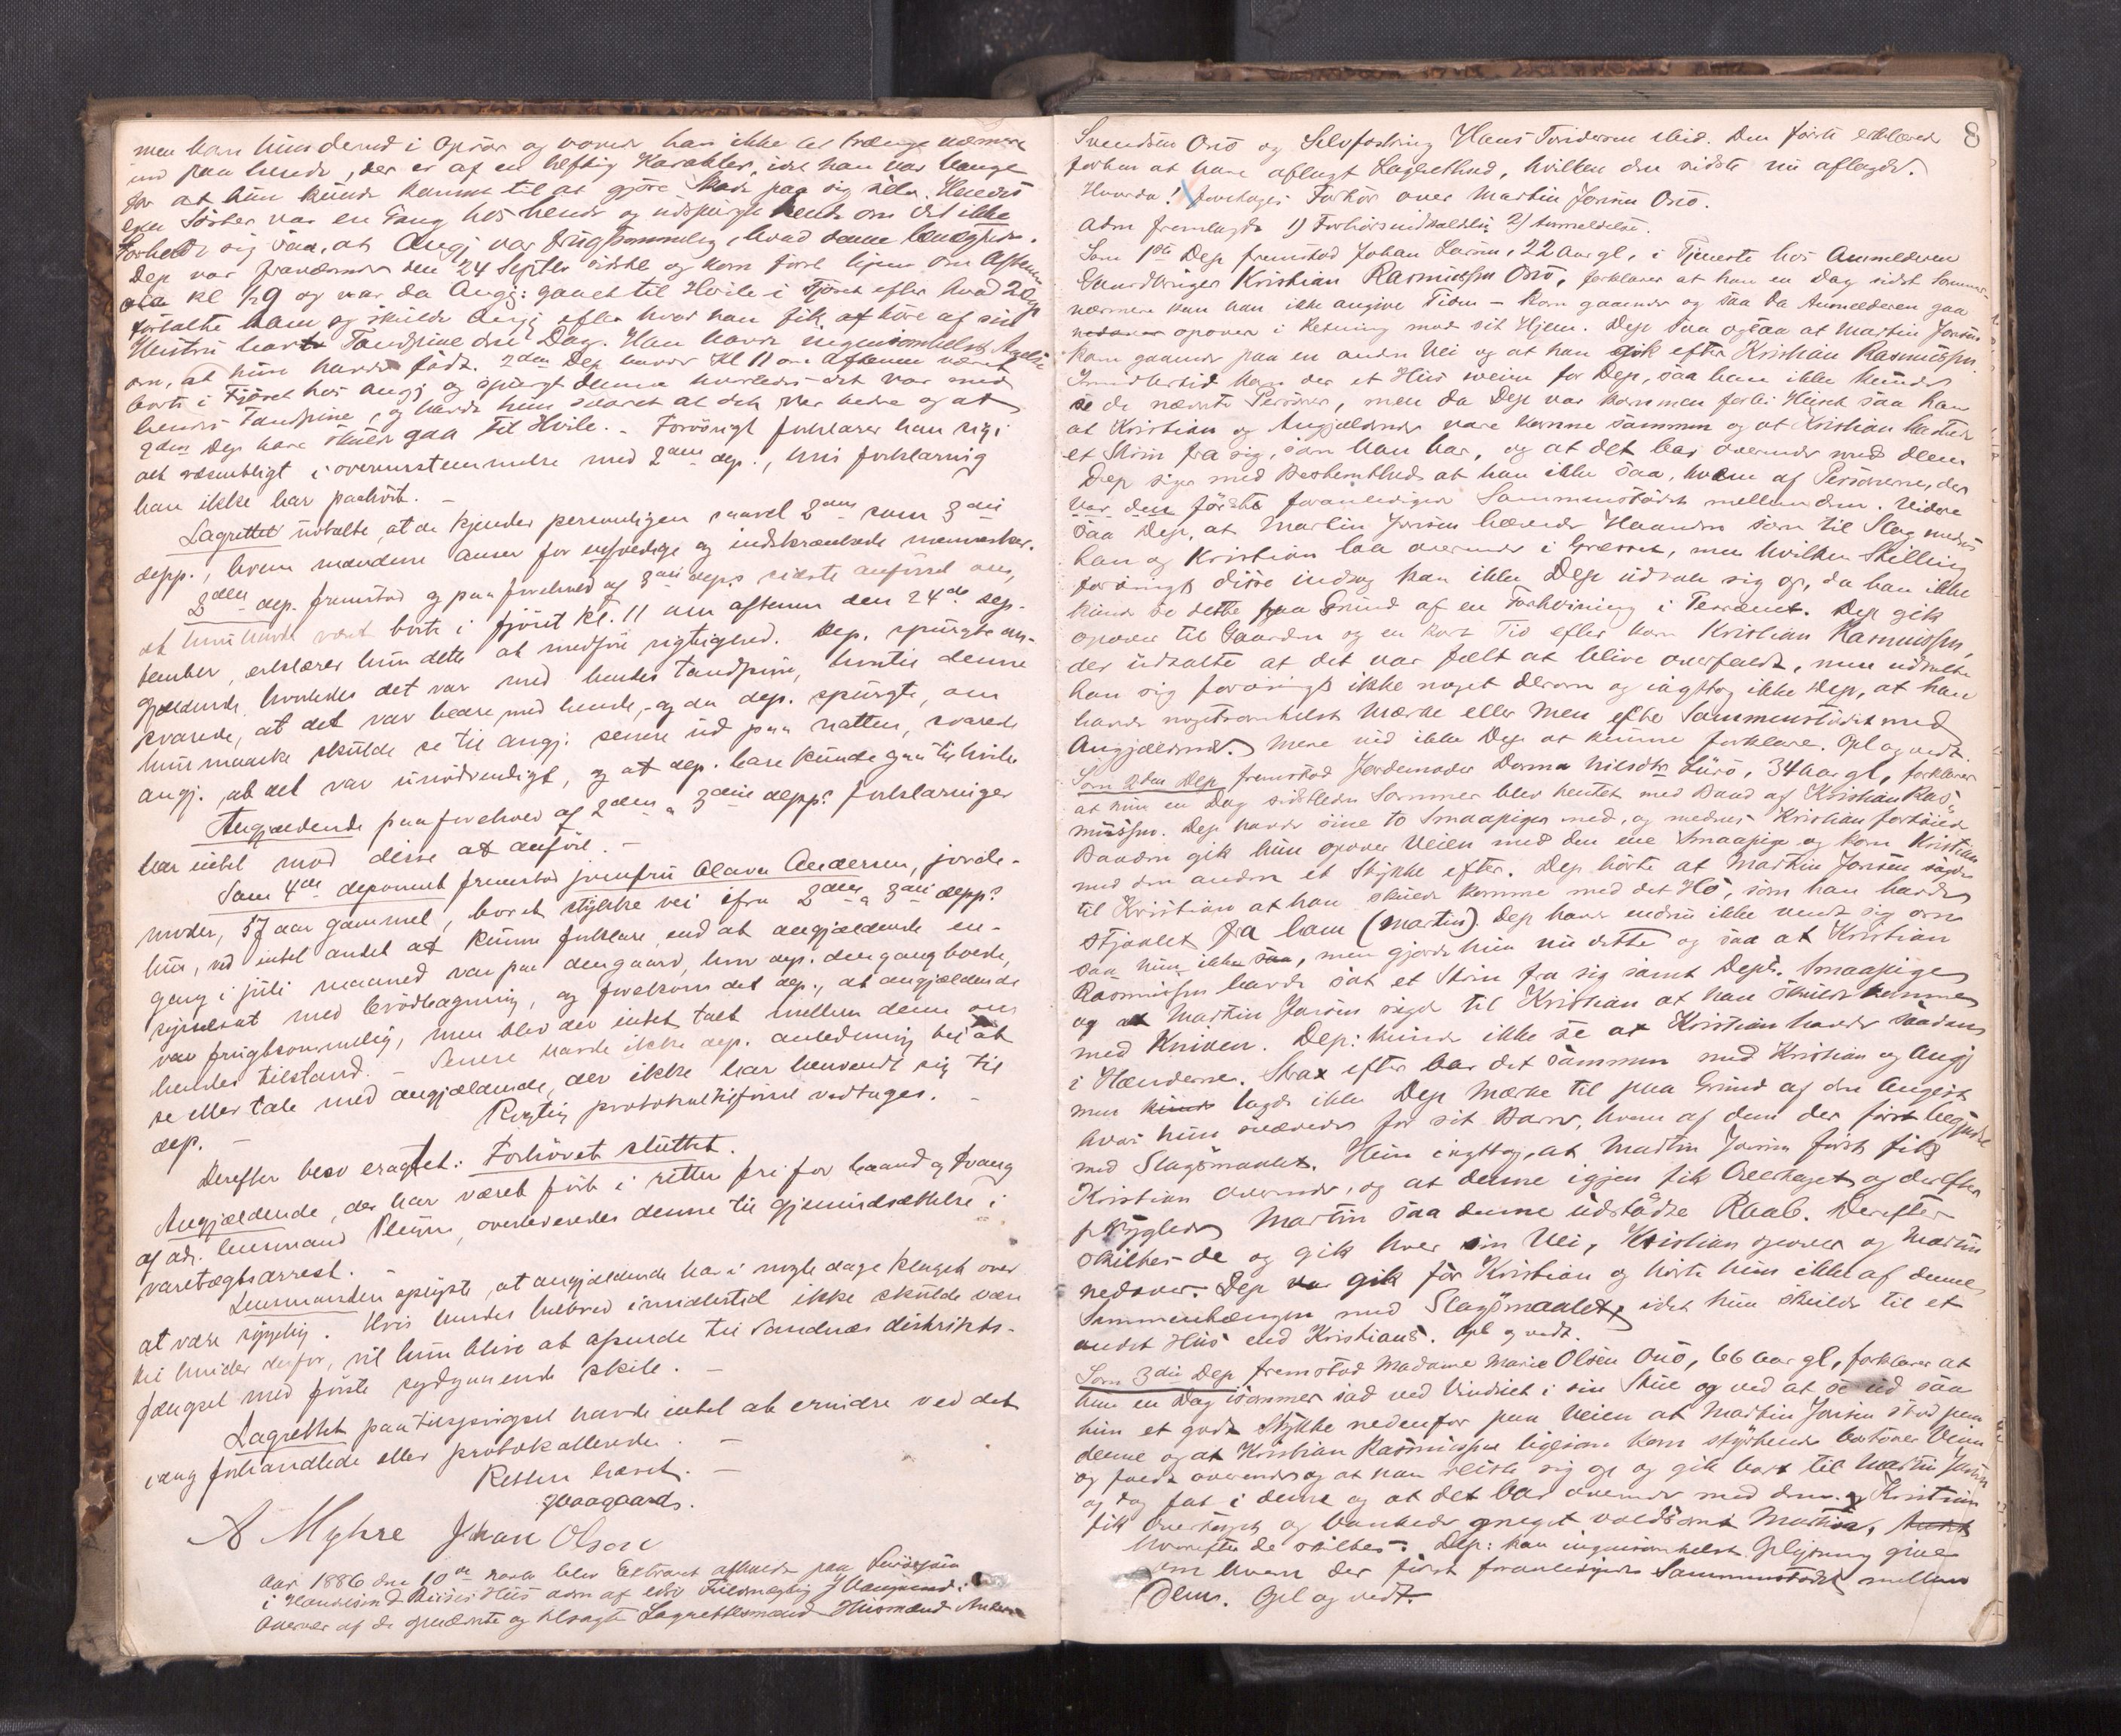 men kom hun derved i Oprør og vovede han ikke at trænge nærmere
ind paa hende, der er af en heftig Karakter, idet han var bange
for at hun kunde komme til at gjøre Skade paa sig selv. Hendes
egen Søster var en Gang hos hende og udspurgte hende om det ikke
forholdt sig saa, at Angj var frugtsommelig, hvad denne benægtede.
Dep var fraværende den 24 Septbr sidstl og kom først hjem om Aftenen
ca kl ½9 og var da Angj: gaaet til Hvile i Fjøset efter hvad 2 Dep
fortalte ham og skulde Angj efter hvad han fik at høre af sin
Hustru havt Tandpine den Dag. Han havde ingensomhelst Anelse
om, at hun havde født. 2den Dep havde Kl 11 om Aftenen været
borte i Fjøset hos Angj og spurgt denne hvorledes det var med
hendes Tandpine, og havde hun svaret at det var bedre og at
2den Dep bare skulde gaa til Hvile. – Forøvrigt forklarer han sig i
alt væsentligt i overensstemmelse med 2den dep., hvis forklaring
han ikke har paahørt. –
Lagrettet udtalte, at de kjender personligen saavel 2den som 3die
depp., hvem mændene anser for enfoldige og indskrænkede mennesker.
2den dep. fremstod og paa forehold af 3die deps sidste anførsel om,
at hun havde været borte i fjøset kl. 11 om aftenen den 24de sep-
tember, erklærer hun dette at medføre rigtighed. Dep. spurgte an-
gjældende hvorledes det var med hendes tandpine, hvortil denne
svarede, at det var bedre med hende, og da dep. spurgte, om
hun maaske skulde se til angj. senere ud paa natten, svarede
angj. at det var unødvendigt, og at dep. bare kunde gaa til hvile
Angjældende paa forehold af 2den og 3die depps forklaringer
har intet mod disse at anføre. –
Som 4de deponent fremstod jomfru Olava Andersen, jorde-
moder, 57 aar gammel, boret stykke vei ifra 2den og 3die depps
hus, ved intet andet at kunne forklare, end at angjældende en-
gang i juli maaned var paa den gaard, hvor dep. dengang boede,
sysselsat med brødbagning, og forekom det dep., at angjældende
var frugtsommelig, men blev der intet talt mellem dem om
hendes tilstand. – Senere havde ikke dep. anledning til at
se eller tale med angjældende, der ikke har henvendt sig til
dep. – Rigtig protokoltilførsel vedtages. –
Derefter blev eragtet: Forhøret sluttet.
Angjældende, der har været ført i retten fri for baand og tvang
af adj. lensmand Pleym, overleveredes denne til gjenindsættelse i
varetægtsarrest. –
Lensmanden oplyste, at angjældende har i nogle dage klaget over
at være sygelig. Hvis hendes helbred imidlertid ikke skulde være
til hinder derfor, vil hun blive at afsende til Sandnæs distrikts-
fængsel med første sydgaaende skib. –
Lagrettet paa tilspørgsel havde intet at erindre ved det
idag forhandlede eller protokollerede. –
Retten hævet. –
Haagaards.
A Myhre Johan Olsen
Aar 1886 den 10de blev Extraret afholdt paa
i Hus adm af edsv Fuldmægtig
Overvær af de opnævnte og tilsagte Lagrettesmænd Husmænd
8
Svendsen Onø og Selvfostring Hans ibid. Den første erklærede
forhen at have aflagt Lagretteed, hvilken den sidste nu aflagde.
Hvorda! foretages Forhør over Martin Jonsen Onø.
Adm fremlagde 1) 2) Anmeldelse.
Som 1ste Dep fremstod Johan Larsen, 22 Aar gl, i Tjeneste hos Anmelderen
Gaardbruger Kristian Rasmussen Onø, forklarer at han en Dag sidst Sommer –
nærmere kan han ikke angive Tiden – kom gaaende og saa da Anmelderen gaa
nedover opover i Retning mod sit Hjem. Dep saa ogsaa at Martin Jonsen
kom gaaende paa en anden Vei og at han gik efter Kristian Rasmussen.
Imidlertid kom der et Hus iveien for Dep, saa han ikke kunde
se de nævnte Personer, men da Dep var kommen forbi Huset saa han
at Kristian og Angjældende vare komne sammen og at Kristian kastede
et Skrin fra sig, som han bar, og at det bar overende med dem
Dep siger med Bestemthed at han ikke saa, hvem af Personerne, der
var den første foranledigede Sammenstødet mellem dem. Videre
saa Dep, at Martin Jonsen hævede Haanden som til Slag medens
han og Kristian laa overende i Græsset, men hvilken Stilling
forøvrigt disse indtog kan ikke Dep udtale sig om, da han ikke
kunde se dette paa Grund af en Forhøining i Terrænet. Dep gik
opover til Gaarden og en kort Tid efter kom Kristian Rasmussen,
der udtalte at det var fælt at blive overfaldt, men udtalte
han sig forøvrigt ikke noget derom og iagttog ikke Dep, at han
havde nogetsomhelst Mærke eller Men efter Sammenstødet med
Angjældende. Mere ved ikke Dep at kunne forklare. Opl og vedt.
Som 2den Dep fremstod Jordemoder Dorma Nilsdtr Lurø, 34 Aar gl, forklarer
at hun en Dag sidstleden Sommer blev hentet med Baad af Kristian Ras-
mussen. Dep havde sine to Smaapiger med, og medens Kristian fortøiede
Baaden gik hun opover Veien med den ene Smaapige og kom Kristian
med den anden et Stykke efter. Dep hørte at Martin Jonsen sagde
til Kristian at han skulde komme med det Hø, som han havde
stjaalet fra ham (Martin). Dep havde endnu ikke vendt sig om
saa hun ikke saa, men gjorde hun nu dette og saa at Kristian
Rasmussen havde sat et Skrin fra sig samt Deps. Smaapige
og at Martin Jonsen sagde til Kristian at han skulde komme
med Kniven. Dep: kunde ikke se at Kristian havde saadan
i Hænderne. Strax efter bar det sammen med Kristian og Angj
men kunde lagde ikke Dep Mærke til paa Grund af den Angest
hvori hun svævede for sit Barn, hvem af dem der først begyndte
med Slagsmaalet. Hun iagttog, at Martin Jonsen først fik
Kristian overende, og at denne igjen fik Overtaget og derefter
pryglede Martin saa denne udstødte Raab. Derefter
skiltes de og gik hver sin Vei, Kristian opover og Martin
nedover. Dep var gik før Kristian og hørte hun ikke af denne
Sammenhængen med Slagsmaalet, idet hun skulde til et
andet Hus end Kristians. Opl og vedt.
Som 3die Dep fremstod Madame Marie Olsen Onø, 66 Aar gl, forklarer at
hun en Dag isommer sad ved Vinduet i sin Stue og ved at se ud saa
hun et godt Stykke nedenfor paa Veien at Martin Jonsen stod paa
denne og at Kristian Rasmussen ligesom kom styrtende bortover Veien
og faldt overende og at han reiste sig op og gik bort til Martin Jonsen
og tog fat i denne og at det bar overende med dem. og Kristian
fik Overtaget og bankede meget voldsomt Martin,
hvorefter de skiltes. Dep: kan ingensomhelst Oplysning give
om hvem der først foranledigede Sammenstødet mellem
dem. Opl og vedt.